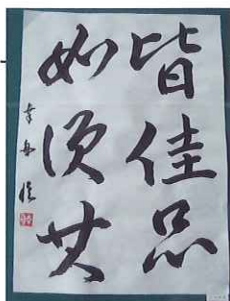 皆佳品
如須其